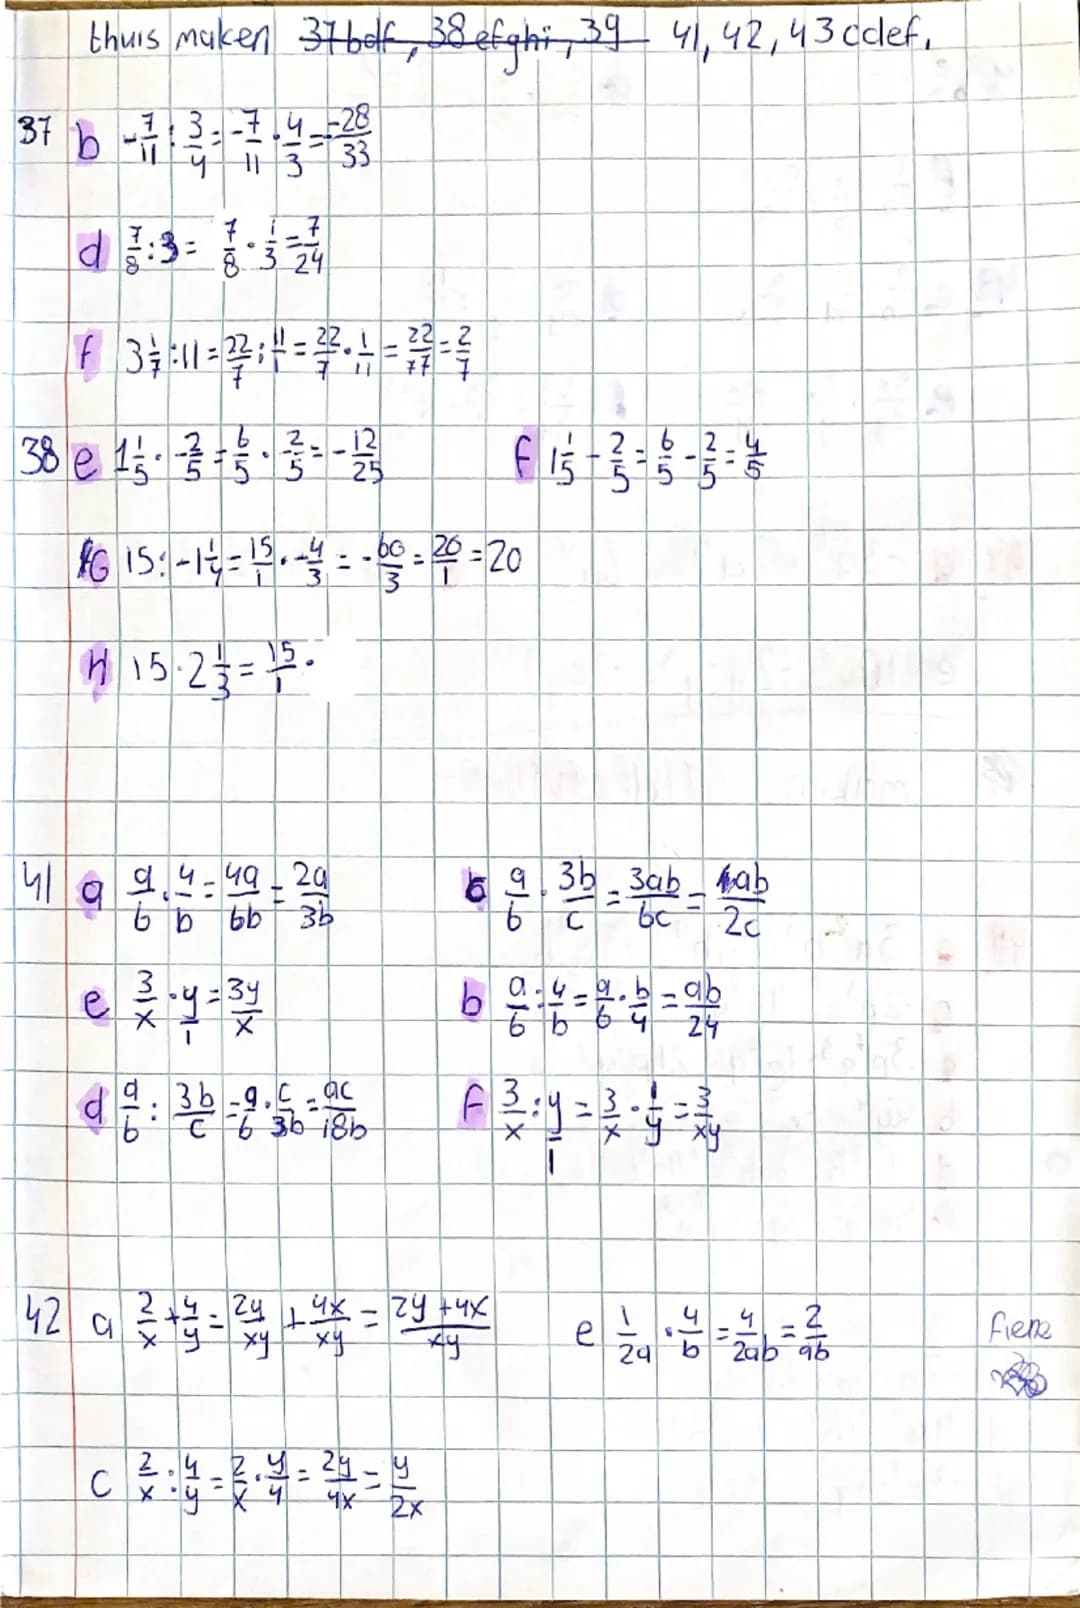 thuis maken 37bdf, 38efghi, 39 41, 42, 43cdef.
37 b -7/11 : 3/4 = -7/11 · 4/3 = -28/33
d 7/8 : 3 = 7/8 · 1/3 = 7/24
f 3 1/7 : 11 = 22/7 : 11/1 = 22/7 · 1/11 = 22/77 = 2/7
38 e 1 1/5 · -2/5 = 6/5 · 2/5 = -12/25 f 1 1/5 - 2/5 = 6/5 - 2/5 = 4/5
G 15 : -1 1/4 = 15/1 · -4/3 = -60/3 = 20/1 = 20
H 15 · 2 1/3 = 15/1 ·
41 a a/6 · 4/b = 4a/6b = 2a/3b c a/6 · 3b/c = 3ab/6c = ab/2c
e 3/x · y/1 = 3y/x b a/6 : 4/b = a/6 · b/4 = ab/24
d a/6 : 3b/c = a/6 · c/3b = ac/18b f 3/x : y/1 = 3/x · 1/y = 3/xy
42 a 2/x + 4/y = 2y/xy + 4x/xy = 2y+4x/xy e 1/2a · 4/b = 4/2ab = 2/ab
c 2/x : 4/y = 2/x · y/4 = 2y/4x = y/2x